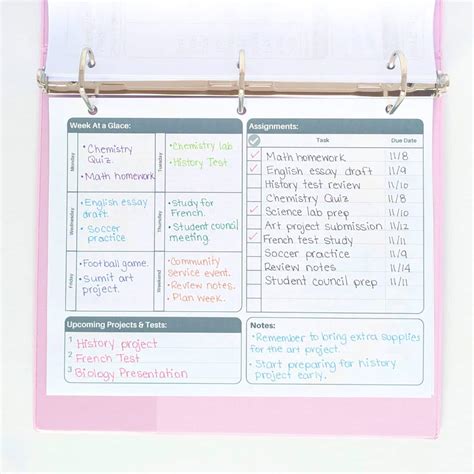 Week At a Glace:
Monday
• Chemistry
Quiz.
• Math homework
Tuesday
• Chemistry lab
• History Test
Wednesday
• English essay
draft.
• Soccer
practice
Thursday
• Study for
French.
• Student council
meeting.
Friday
• Football game.
• Sumit art
project.
Weekend
• Community
service event.
• Review notes.
• Plan week.
Assignments:
Task Due Date
✓ Math homework 11/8
✓ English essay draft 11/9
History test review 11/10
Chemistry Quiz 11/8
✓ Science lab prep 11/10
Art project submission 11/11
✓ French test study 11/11
Soccer practice 11/9
Review notes 11/14
Student council prep 11/11
Upcoming Projects & Tests:
1 History project
2 French Test
3 Biology Presentation
Notes:
• Remember to bring extra supplies
for the art project.
• Start preparing for history
project early.